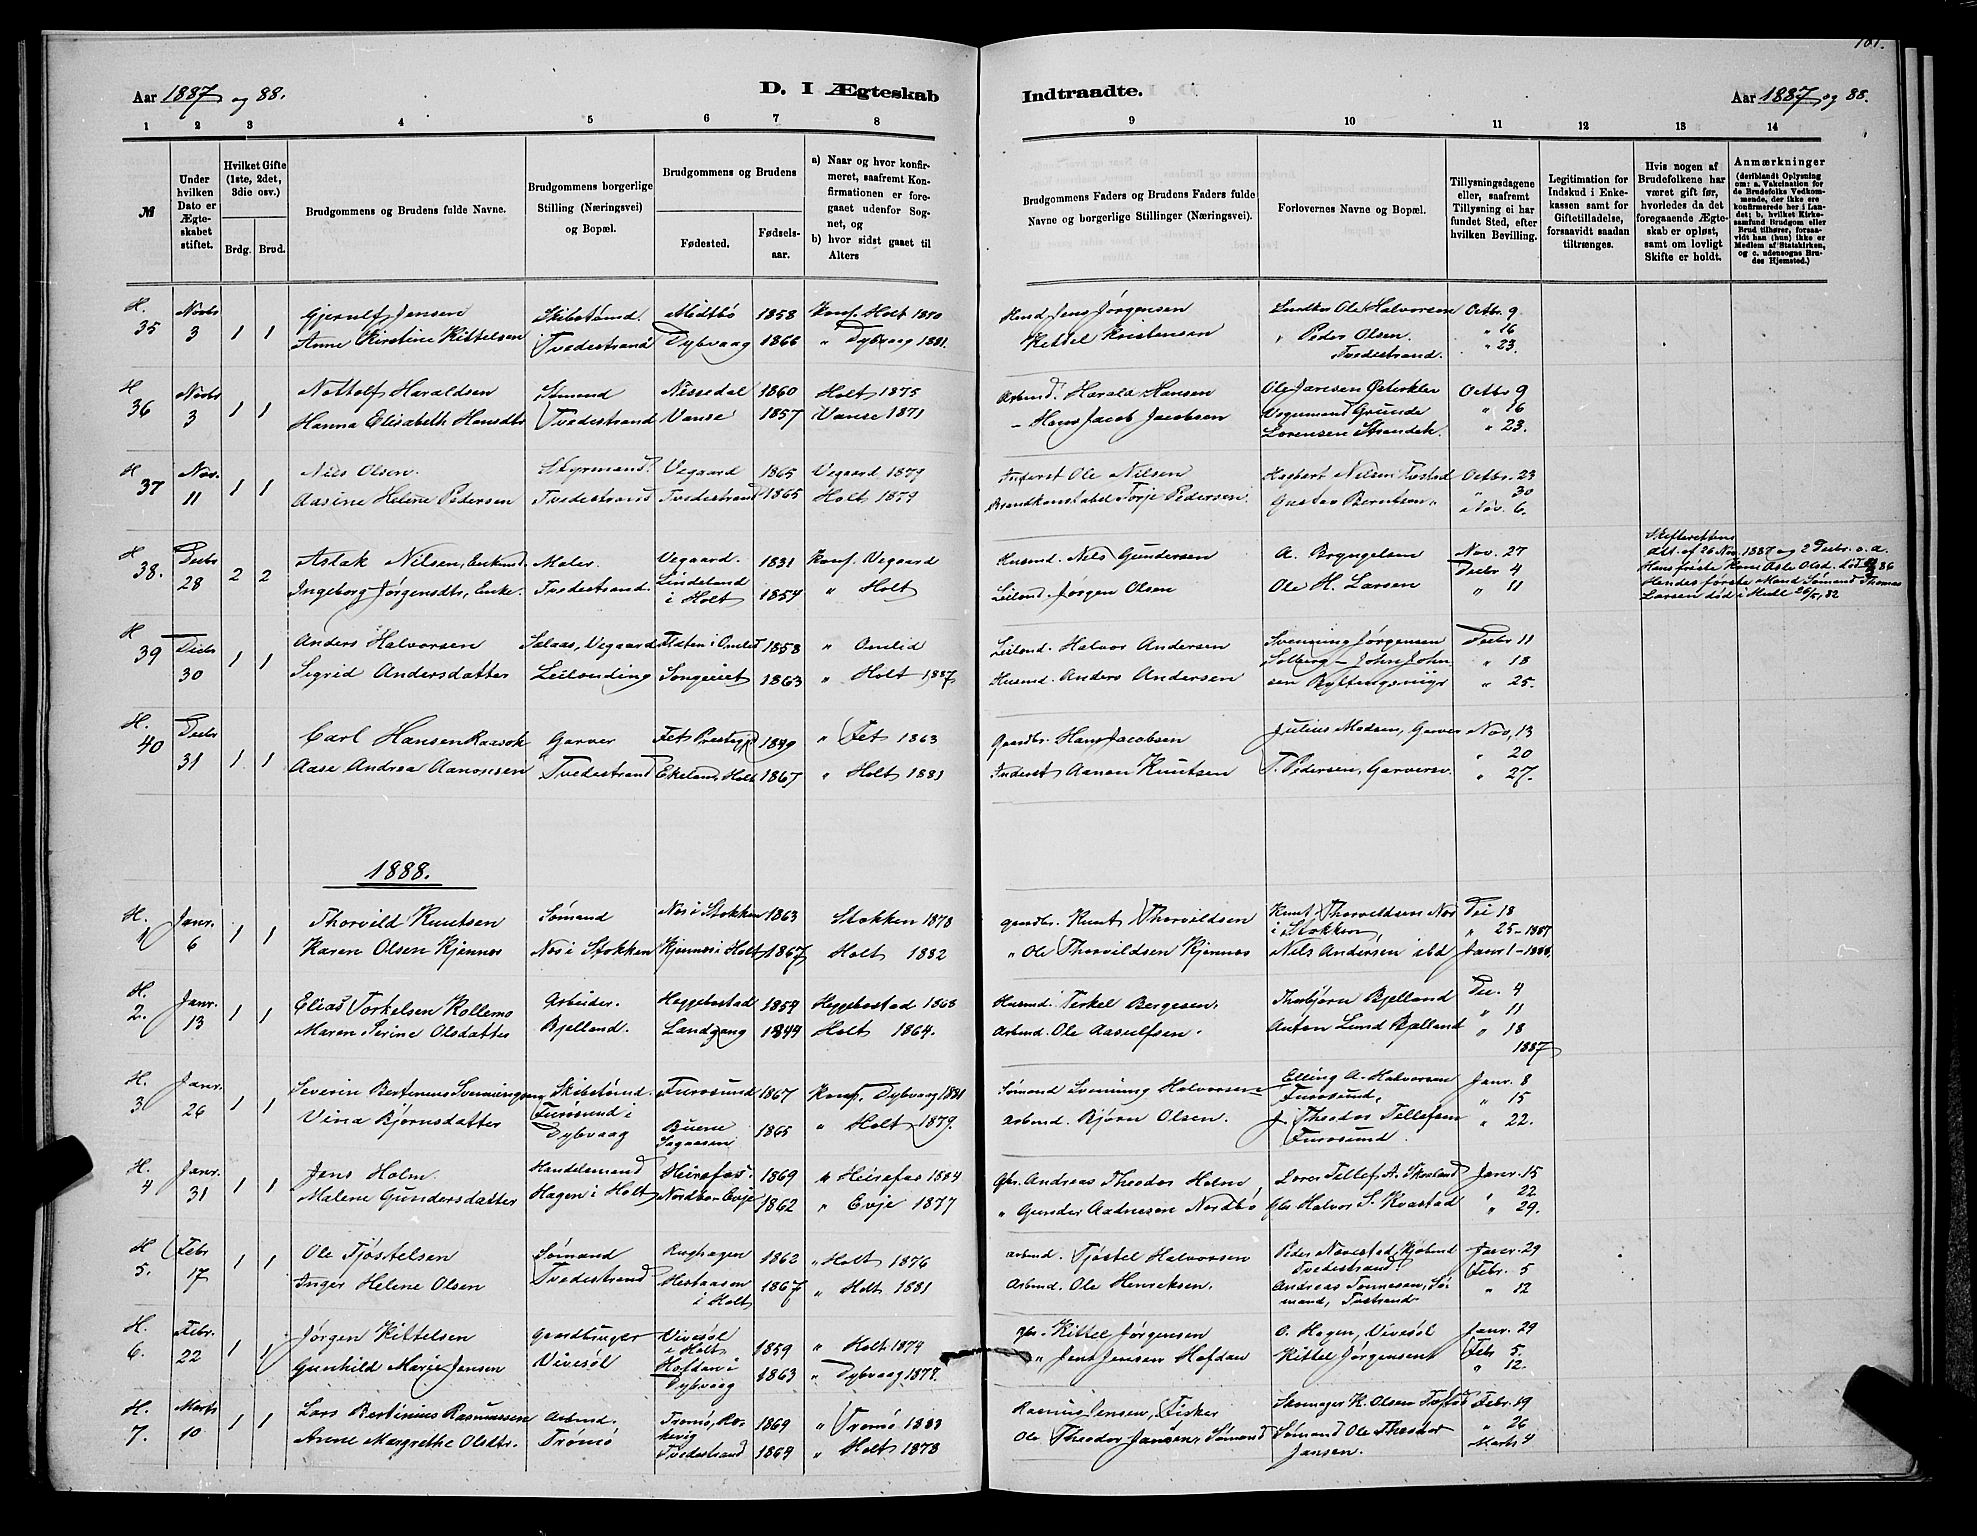 181.
Aar 1887 og 88.
D. I Ægteskab
Indtraadte.
Aar 1887 og 88.
1 2 3 4 5 6 7 8
9 10 11 12 13 14
№
Under hvilken Dato er Ægteskabet stiftet.
Hvilket Gifte (1ste, 2det, 3die osv.)
Brdg. Brud.
Brudgommens og Brudens fulde Navne.
Brudgommens borgerlige Stilling (Næringsvei) og Bopæl.
Brudgommens og Brudens
Fødested. Fødselsaar.
a) Naar og hvor konfirmeret, saafremt Konfirmationen er foregaaet udenfor Sognet, og
b) hvor sidst gaaet til Alters
Brudgommens Faders og Brudens Faders fulde Navne og borgerlige Stillinger (Næringsvei).
Forlovernes Navne og Bopæl.
Tillysningsdagene eller, saafremt Tillysning ei har fundet Sted, efter hvilken Bevilling.
Legitimation for Indskud i Enkekassen samt for Giftetilladelse, forsaavidt saadan tiltrænges.
Hvis nogen af Brudefolkene har været gift før, hvorledes da det foregaaende Ægteskab er opløst, samt om lovligt Skifte er holdt.
Anmærkninger (deriblandt Oplysning om: a. Vakcination for de Brudefolks Vedkommende, der ikke ere konfirmerede her i Landet; b. hvilket Kirkesamfund Brudgom eller Brud tilhører, forsaavidt han (hun) ikke er Medlem af Statskirken, og c. udensogns Brudes Hjemsted.)
H. 35 Novbr 3 1 1 Gjerulf Jensen Skibstømd. Midtbø 1858 Konf. Holt 1880 Jens Jørgensen Ole Halvorsen Octbr. 9
Anne Kirstine Kittelsen Tvedestrand Dybvaag 1866 " Dybvaag 1881. Kettel Kristensen " Peder Olsen " 16
Tvedestrand. " 23.
H 36 Novbr 3 1 1 Nottolf Haraldsen Sømand Nissedal 1860 Holt 1875 Arbmd. Harald Hansen Ole Jensen Octbr 9
Hanna Elisabeth Hansdtr Tvedestrand Vanse 1857 Vanse 1871 – Hans Jacob Jacobsen Vognmand Grunde " 16
Lorensen " 23.
H 37 Nov. 11 1 1 Niels Olsen. Styrmand. Vegaard 1865 Vegaard 1879 Inderst Ole Nilsen Nilsen Octbr. 23
Aasine Helene Pedersen Tvedestrand Tvedestrand 1865 Holt 1879 Brandkonstabel Torje Pedersen Gustav Berntsen " " 30
Nov. 6.
H 38. Decbr 28 2 2 Aslak Nilsen, Enkemd Maler Vegaard. 1831 Konf. Vegaard Husmd. Nils Gundersen A. Bryngelsen Nov. 27
Ingeborg Jørgensdtr, Enke. Tvedestrand. Lindeland i Holt 1854 " Holt Leilænd. Jørgen Olsen Ole H. Larsen Decbr 4
" 11
Skifterettens
Att. af 26 Nov. 1887 og 2 Decbr. s. a.
Hans første Kone Asle Olsd. død 86
Hendes første Mand Sømand Thomas
Larsen død i Hull 26/5 82
H 39 Decbr 30 1 1 Anders Halvorsen Salaas, Vegaard i Omlid 1858 " Omlid Leilænd. Halvor Andersen Svenning Jørgensen Decbr 11
Sigrid Andersdatter Leilænding Songe 1863 " Holt 1887 Husmd. Anders Andersen Solberg – John John " 18
sen " 25.
H. 40 Decbr 31 1 1 Carl Hansen Raavok Garver Fet Prestegjd 1849 " Fet 1863 Gaardbr. Hans Jacobsen Julius Madsen, Garver Nov. 13
Aase Andrea Aanonsen Tvedestrand Ekeland, Holt 1867 " Holt 1881 Inderst Aanon Knutsen T. Pedersen, Garversv. " 20
" 27.
1888.
H. 1 Janr. 6 1 1 Thorvild Knutsen Sømand Nes i Stokken 1863 Stokken 1878 gaardbr. Knut Thorvildsen Knut Thorvildsen Nes Dec 18
Karen Olsen Kjennes Nes i Stokken Kjennes i Holt 1867 Holt 1882 " Ole Thorvildsen Kjennes i Stokken " 25 – 1887
Nils Andersen ibd Janr 1 – 1888.
H. 2. Janr. 13 1 1 Elias Torkelsen Rollemo Arbeider. Heggebostad 1859 Heggebostad 1868 Husmd. Terkel Bergesen. Thorbjørn Bjelland Dec. 4
Maren Serine Olsdatter Bjelland. Landgang 1849 Holt 1864. Arbmd. Ole Aasulfsen. Anton Lund Bjelland " 11
" 18
1887
H. 3 Janr. 26 1 1 Severin Bertinius Svenningsen Skibstømd. Furøsund 1867 Konf. Dybvaag 1881 Sømand Svenning Halvorsen Elling A. Halvorsen Janr. 8
Vina Bjørnsdatter Furøsund i Dybvaag Buene Sagaasen 1865 " Holt 1879. arbmd. Bjørn Olsen. Furøsund, " 15
J. Theodor Tellefsen " 22.
Furøsund.
H. 4 Janr. 31 1 1 Jens Holm Handelsmand Heirefos. 1869 " Heirefos 1884 Gbr. Andreas Theodor Holm Tellef A. Skorland Janr. 15
Malene Gundersdatter Hagen i Holt Nordbø – Evje 1862 " Evje 1877 " Gunder Aadnesen Nordbø Gbr Halvor S. Kvastad " 22
" 29.
H 5. Febr 17 1 1 Ole Tjøstelsen Sømand Rughagen 1862 " Holt 1876 arbmd. Tjøstel Halvorsen Peder Navestad, Kjøbmd Janr. 29
Inger Helene Olsen Tvedestrand Hestaasen i Holt 1867 " Holt 1881 Arbmd. Ole Henriksen. Tvedestrand. Febr. 5
Andreas Tønnesen, Sø- " 12
mand, Tvstrand
H. 6. Febr. 22 1 1 Jørgen Kittelsen Gaardbruger Vivesøl i Holt 1859 " Holt 1874 gbr. Kittel Jørgensen O. Hagen, Vivesøl Janr. 29
Gunhild Marie Jensen Vivesøl Hofdan i Dybvaag 1863 " Dybvaag 1879. " Jens Jensen Hofdan Kittel Jørgensen Febr 5.
" 12.
H. 7. Marts 10 1 1 Lars Bertinius Rasmussen Arbmd. Tromø, Revkevig 1869 " Tromø 1883 Rasmus Jensen, Fisker Skomager K. Olsen Febr. 19
Anne Margrethe Olsdtr. Tromø Tvedestrand 1864 " Holt 1878 Ole Theodor Jansen, Sømand Sømand Ole Theodor " 26
Jansen. Marts 4